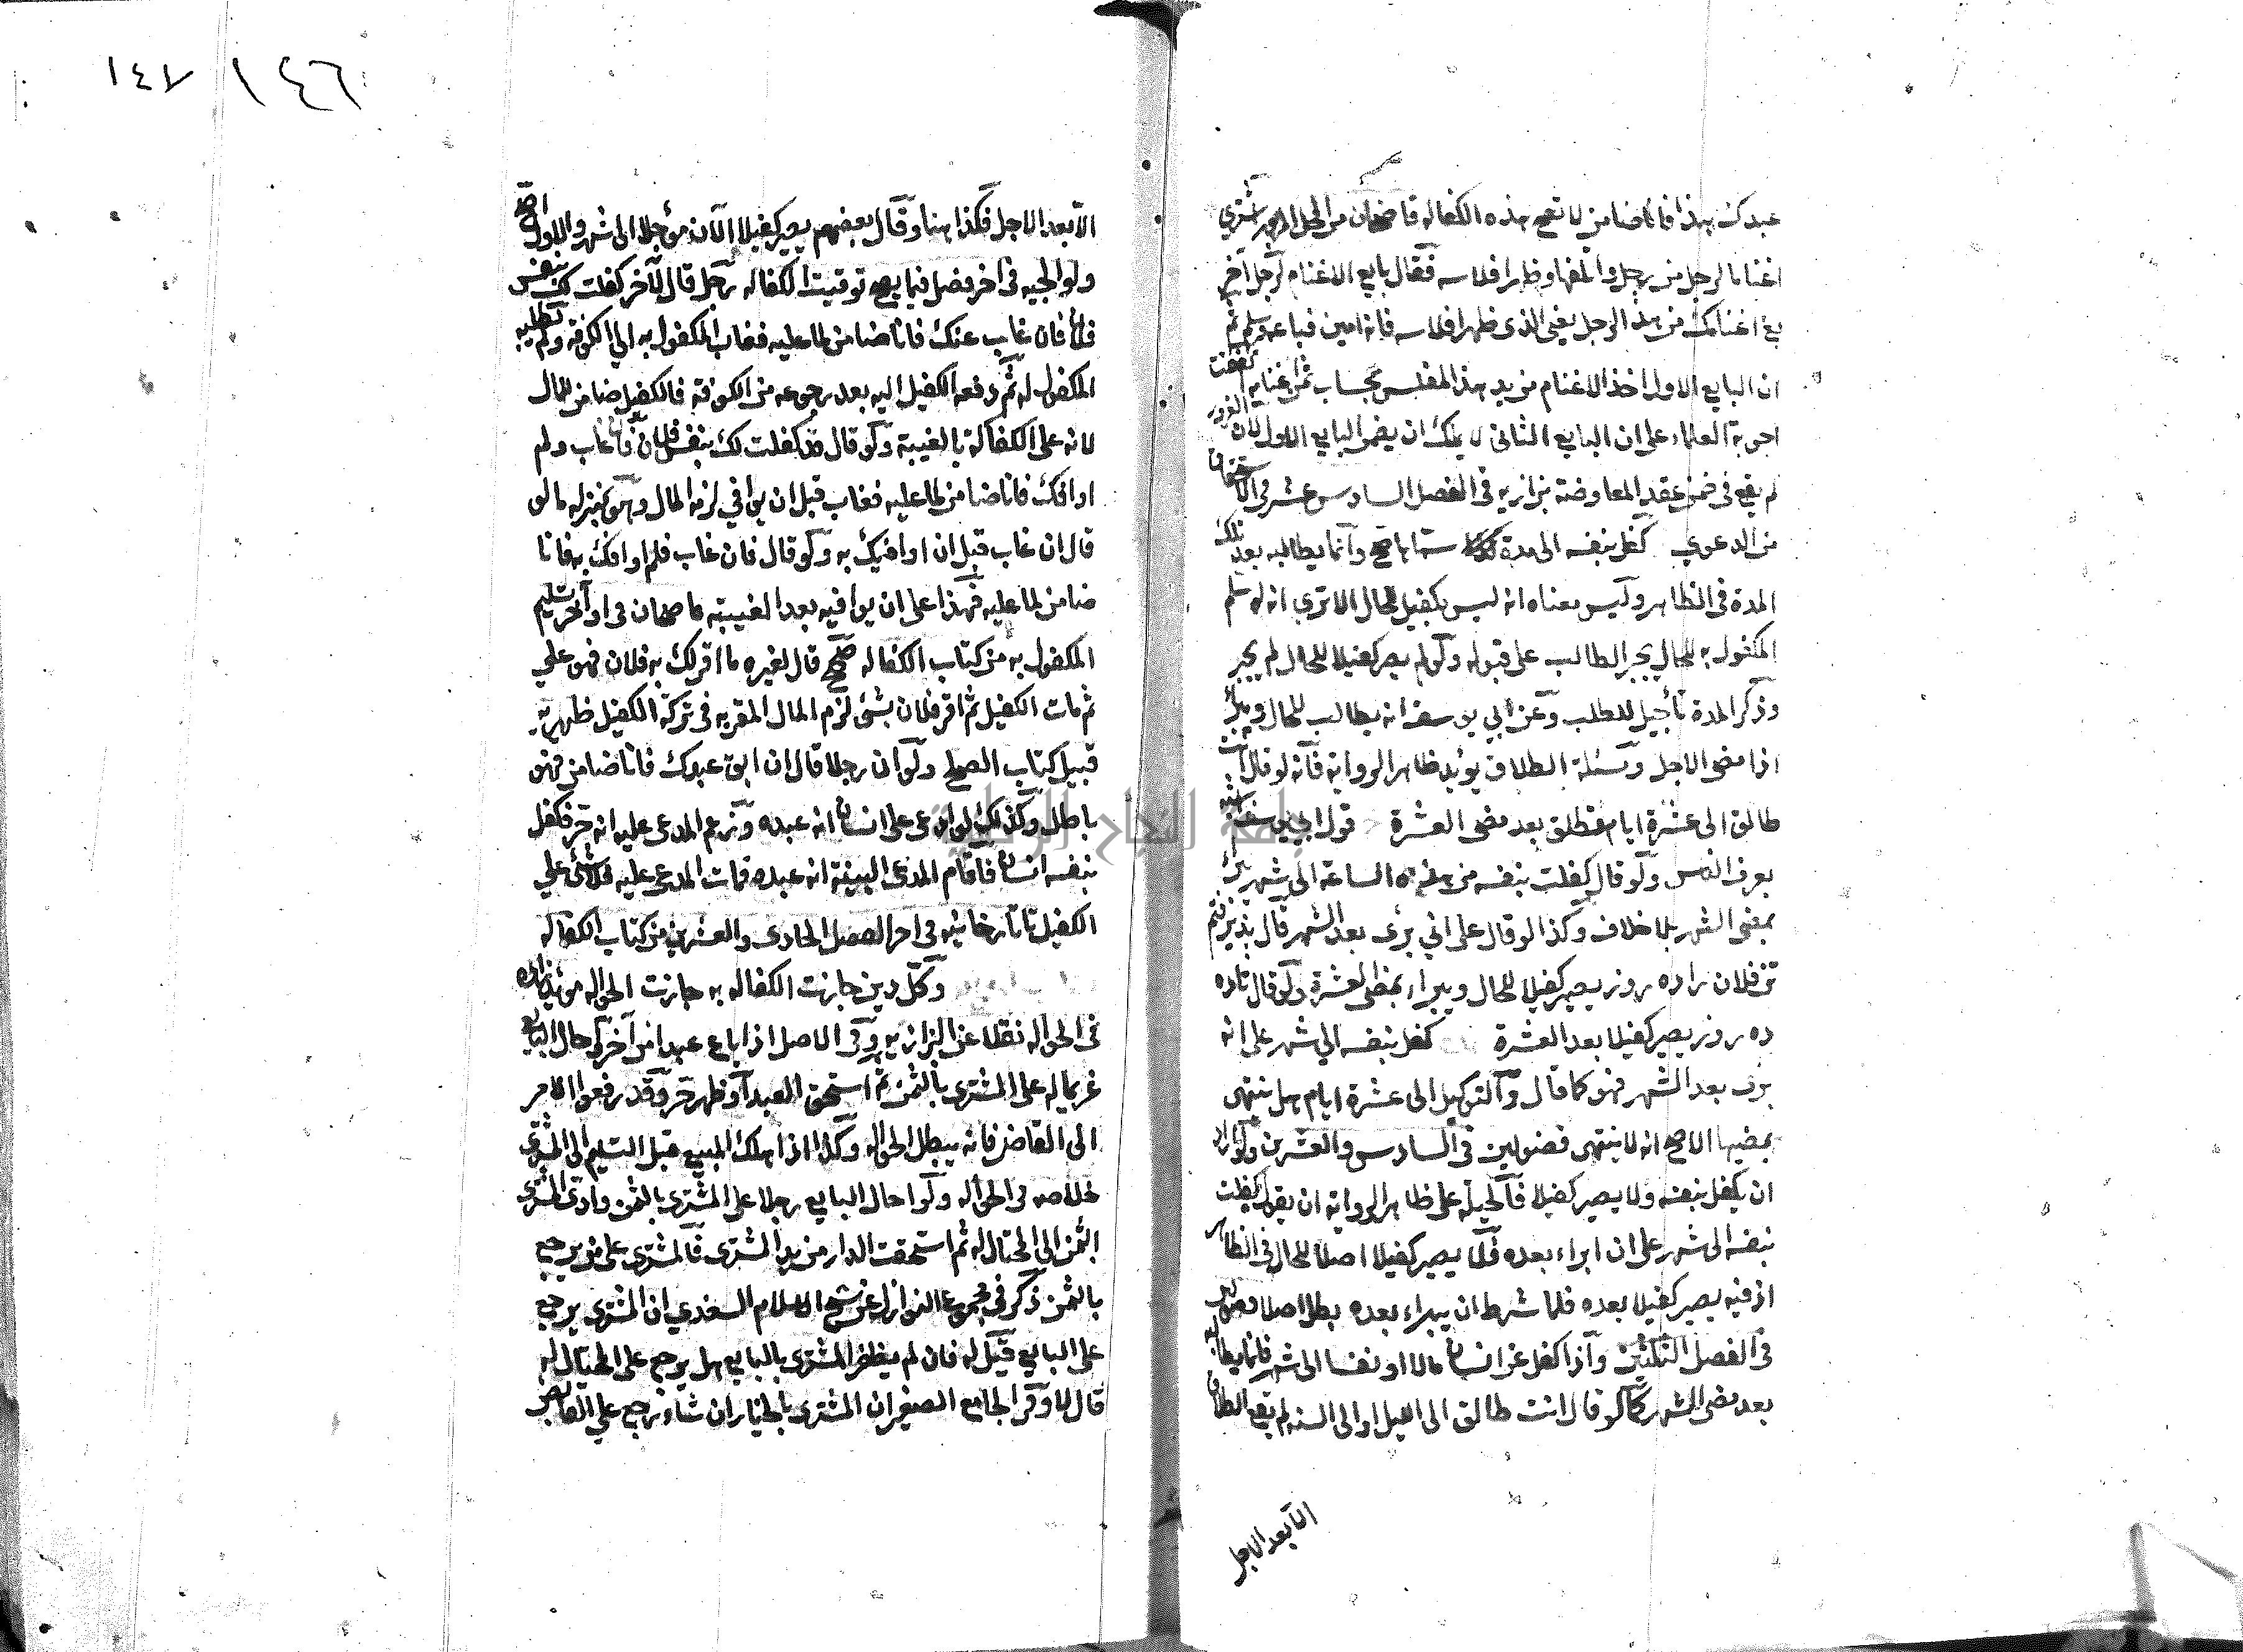 ١٤٧ ١٤٦
عبدك هذا فانا ضامن لا تصح هذه الكفالة قاضيخان من المحل المزبور اشترى
اغناما لرجل من رجل واتلفها وظهر افلاسه فقال بايع الاغنام لرجل آخر
بع اغنامك من هذا الرجل يعني الذي ظهر افلاسه فانه امين فباعه وسلم ثم
ان البايع الاول اخذ الاغنام من يد هذا المفلس بحساب ثمن اغنامه اتفقت
اجوبة العلماء على ان البايع الثاني لا يملك ان يضمن البايع الاول لان الغرور
لم يقع في ضمن عقد المعاوضة بزازيه في الفصل السادس عشر في الاستحقاق
من الدعوي كفل بنفسه الى مدة سماها صح وانما يطالبه بعد تلك
المدة في الظاهر وليس معناه انه ليس بكفيل للحال الا ترى انه لو سلم
المكفول به للحال يجبر الطالب على قبوله ولو لم يصر كفيلا للحال لم يجبر
وذكر المدة تأجيل للطلب وعن ابي يوسف انه يطالب للحال ويبرأ
اذا مضى الاجل ومسئلة الطلاق يؤيد ظاهر الرواية فانه لو قال انت
طالق الى عشرة ايام تطلق بعد مضى العشرة قول ابي يوسف اشبه
بعرف الناس ولو قال كفلت بنفسه من هذه الساعة الى شهر يبرئ
بمضى الشهر بلا خلاف وكذا لو قال على اني برئ بعد الشهر قال بذيرفتم
تن فلان را ده روز يصير كفيلا للحال ويبراء بمضى العشرة ولو قال تا ده
ده روز يصير كفيلا بعد العشرة كفل بنفسه الي شهر على انه
برئ بعد الشهر فهو كما قال والتوكيل الى عشرة ايام هل ينتهى
بمضيها الاصح انه لا ينتهى فصولين في السادس والعشرين ولو اراد
ان يكفل بنفسه ولا يصير كفيلا فالحيلة على ظاهر الرواية ان يقول كفلت
بنفسه الى شهر على ان ابراء بعده فلا يصير كفيلا اصلا للحال في الظاهر
اذ فيه يصير كفيلا بعده فلما شرط ان يبراء بعده بطل اصلا فصولين
في الفصل الثلثين واذا كفل عن انسان مالا او نفسا الى شهر فانما يطالبه
بعد مضى الشهر كما لو قال انت طالق الى الليل او الى السنة لم يقع الطلاق
الا بعد الاجل
الا بعد الاجل فكذا هنا وقال بعضهم يصير كفيلا الآن مؤجلا الى شهر والاول اصح
ولوالجيه في اخر فصل فيما يصح توقيت الكفاله رجل قال لآخر كفلت لك بنفس
فلان فان غاب عنك فانا ضامن لما عليه فغاب المكفول به الي الكوفة ولم يطلبه
المكفول له ثم دفعه الكفيل اليه بعد رجوعه من الكوفة فالكفيل ضامن للمال
لانه على الكفالة بالغيبة ولو قال قد كفلت لك بنفس فلان فان غاب ولم
اوافك فانا ضامن لما عليه فغاب قبل ان يوافي لزمه المال وهو بمنزله ما لو
قال ان غاب قبل ان اوافيك به ولو قال فان غاب فلم اوافك به فانا
ضامن لما عليه فهذا على ان يوافيه بعد الغيبة قاضيخان في اواخر تسليم
المكفول به من كتاب الكفاله صح قال لغيره ما اقر لك به فلان فهو علي
ثم مات الكفيل ثم اقر فلان بشئ لزم المال المقر به في تركة الكفيل ظهيريه
قبيل كتاب الصلح ولو ان رجلا قال ان ابق عبدك فانا ضامن فهو
باطل وكذلك لو ادعى على انسان انه عبده وزعم المدعى عليه انه حر فكفل
بنفسه انسان فاقام المدعى البينة انه عبده فمات المدعى عليه فلا شئ علي
الكفيل تاتارخانيه في اخر الفصل الحادى والعشرين من كتاب الكفاله
وكل دين جازت الكفاله به جازت الحواله مؤيد زاده
في الحواله نقلا عن البزازيه وفي الاصل اذا باع عبدا من آخر واحال البايع
غريما له على المشترى بالثمن ثم استحق العبد او ظهر حر وقد رفعوا الامر
الى القاضي فانه يبطل الحواله وكذا اذا هلك المبيع قبل التسليم الى المشترى
خلاصه في الحواله ولو احال البايع رجلا على المشترى بالثمن وادى المشترى
الثمن الى المحتال له ثم استحقت الدار من يد المشترى فالمشترى على من يرجع
بالثمن ذكر في مجموع النوازل عن شيخ الاسلام السغدي ان المشترى يرجع
على البايع قيل له فان لم يظفر المشترى بالبايع هل يرجع على المحتال له
قال لا وفي الجامع الصغير ان المشترى بالخيار ان شاء رجع علي القابض